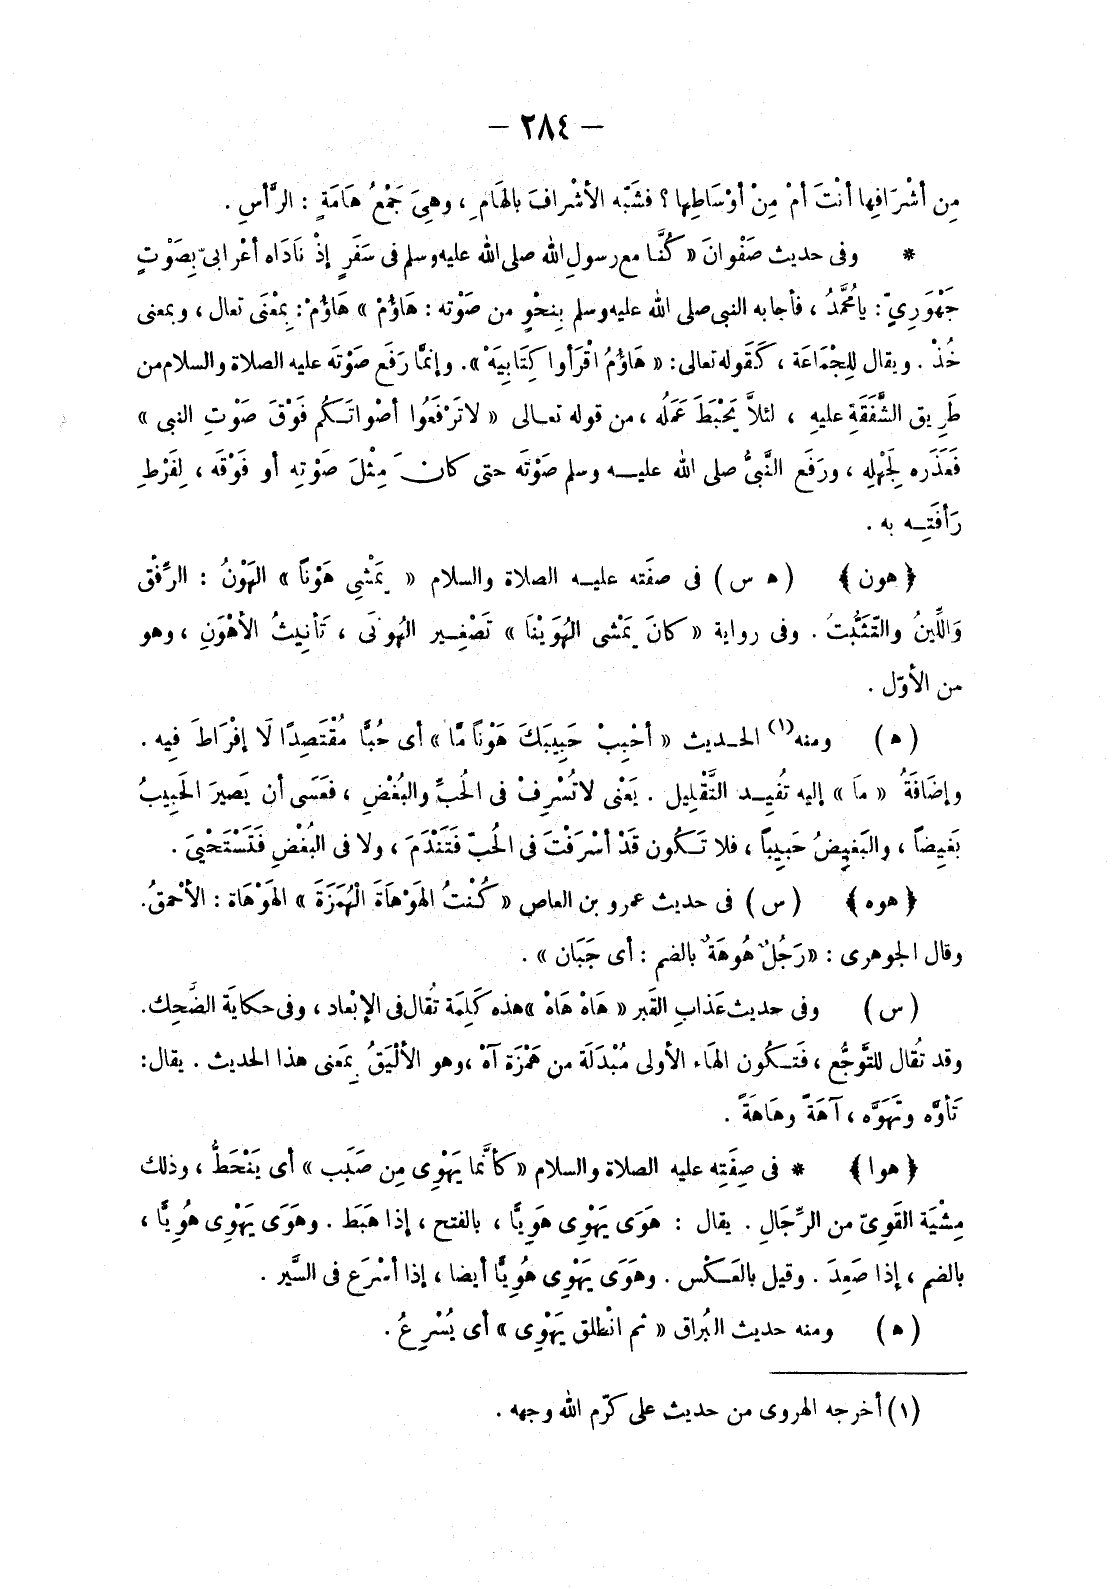 — ٢٨٤ —
مِن أشْرَافِها أنْتَ أمْ مِنْ أوْسَاطِها؟ فشَبّه الأشْرافَ بالهَامِ، وهِىَ جَمْعُ هَامَةٍ : الرَّأسِ .
* وفى حديث صَفْوانَ « كُنَّا مع رسولِ الله صلى الله عليه وسلم فى سَفَرٍ إذْ نَادَاه أعْرابىّ بِصَوْتٍ
جَهْوَرِيّ : يا مُحَمَّدُ ، فأجابه النبى صلى الله عليه وسلم بِنحْوٍ من صَوْته : هَاؤُمْ » هَاؤُمْ : بِمْعْنَى تعال ، وبمعنى
خُذْ . ويقال لِلجْمَاعَة ، كَقَوله تعالى : « هَاؤُمُ اقْرَأوا كِتَابِيَهْ » . وإنمَّا رَفَع صَوْتَه عليه الصلاة والسلام من
طَرِيق الشَّفَقَةِ عليهِ ، لئلاَّ يَحْبَطَ عَمَلُه ، من قوله تعـالى « لا تَرْفَعُوا أصْواتَـكُم فَوْقَ صَوْتِ النبى »
فَعَذَره لِجَهْلِه ، ورَفَع النَّبىُّ صلى الله عليــه وسلم صَوْتَه حتى كان مِثْلَ صَوْتِه أو فَوْقَه ، لِفَرْطِ
رَأفَتِـه به .
﴿ هون ﴾ ( ه س ) فى صفَته عليــه الصلاة والسلام « يَمْشِى هَوْناً » الهَوْنُ : الرِّفْق
وَاللِّينُ والتَّثَبُّتُ . وفى رواية « كانَ يَمْشى الهُوَيْنَا » تَصْغِـير الهُونَى ، تَأنِيثُ الأهْوَنِ ، وهو
من الأوّل .
( ه ) ومنه (١) الحـديث « أحْبِبْ حَبِيبَكَ هَوْناً مَّا » أى حُبًّا مُقْتَصِدًا لَا إفْرَاطَ فِيه .
وإضَافَةُ « مَا » إليه تُفيِـد التَّقْلِيل . يَعْنى لا تُسْرِفْ فى الحُبِّ والبُغْضِ ، فعَسَى أن يَصيرَ الحَبِيبُ
بَغيضاً ، والبَغيِضُ حَبِيباً ، فلا تَـكُون قَدْ أسْرَفْتَ فى الحُبّ فَتَنْدَمَ ، ولا فى البُغْضِ فَتَسْتَحْيِىَ .
﴿ هوه ﴾ ( س ) فى حديث عمرو بن العاص « كُنْتُ الهَوْهَاةَ الْهُمَزَةَ » الهَوْهَاة : الأحْمَقُ .
وقال الجوهرى : « رَجُلٌ هُوهَةٌ بالضم : أى جَبَان » .
( س ) وفى حديث عَذابِ القَبر « هَاهْ هَاهْ » هذه كَلِمَة تُقال فى الإبْعاد ، وفى حكايَة الضَّحِك .
وقد تُقال للتَّوجُّع ، فَتَـكُون الهَاء الأولى مُبْدَلَة من هَمْزَة آهْ ، وهو الألْيَقُ بِمَعنى هذا الحديث . يقال :
تَأوَّه وتَهَوَّه ، آهَةً وهَاهَةً .
﴿ هوا ﴾ * فى صِفَتِه عليه الصلاة والسلام « كأنَّما يَهْوِى مِن صَبَب » أى يَنْحَطُّ ، وذلك
مِشْيَة القَوِىّ من الرِّجَالِ . يقال : هَوَى يَهْوِى هَوِيًّا ، بالفتح ، إذا هَبَط . وهَوَى يَهْوِى هُوِيًّا ،
بالضم ، إذا صَعِدَ . وقيل بالعَـكْس . وهَوَى يَهْوِى هُوِيًّا أيضا ، إذا أسْرَع فى السَّير .
( ه ) ومنه حديث البُراق « ثم انْطلق يَهْوِى » أى يُسْرِعُ .
(١) أخرجه الهروى من حديث على كرّم الله وجهه .